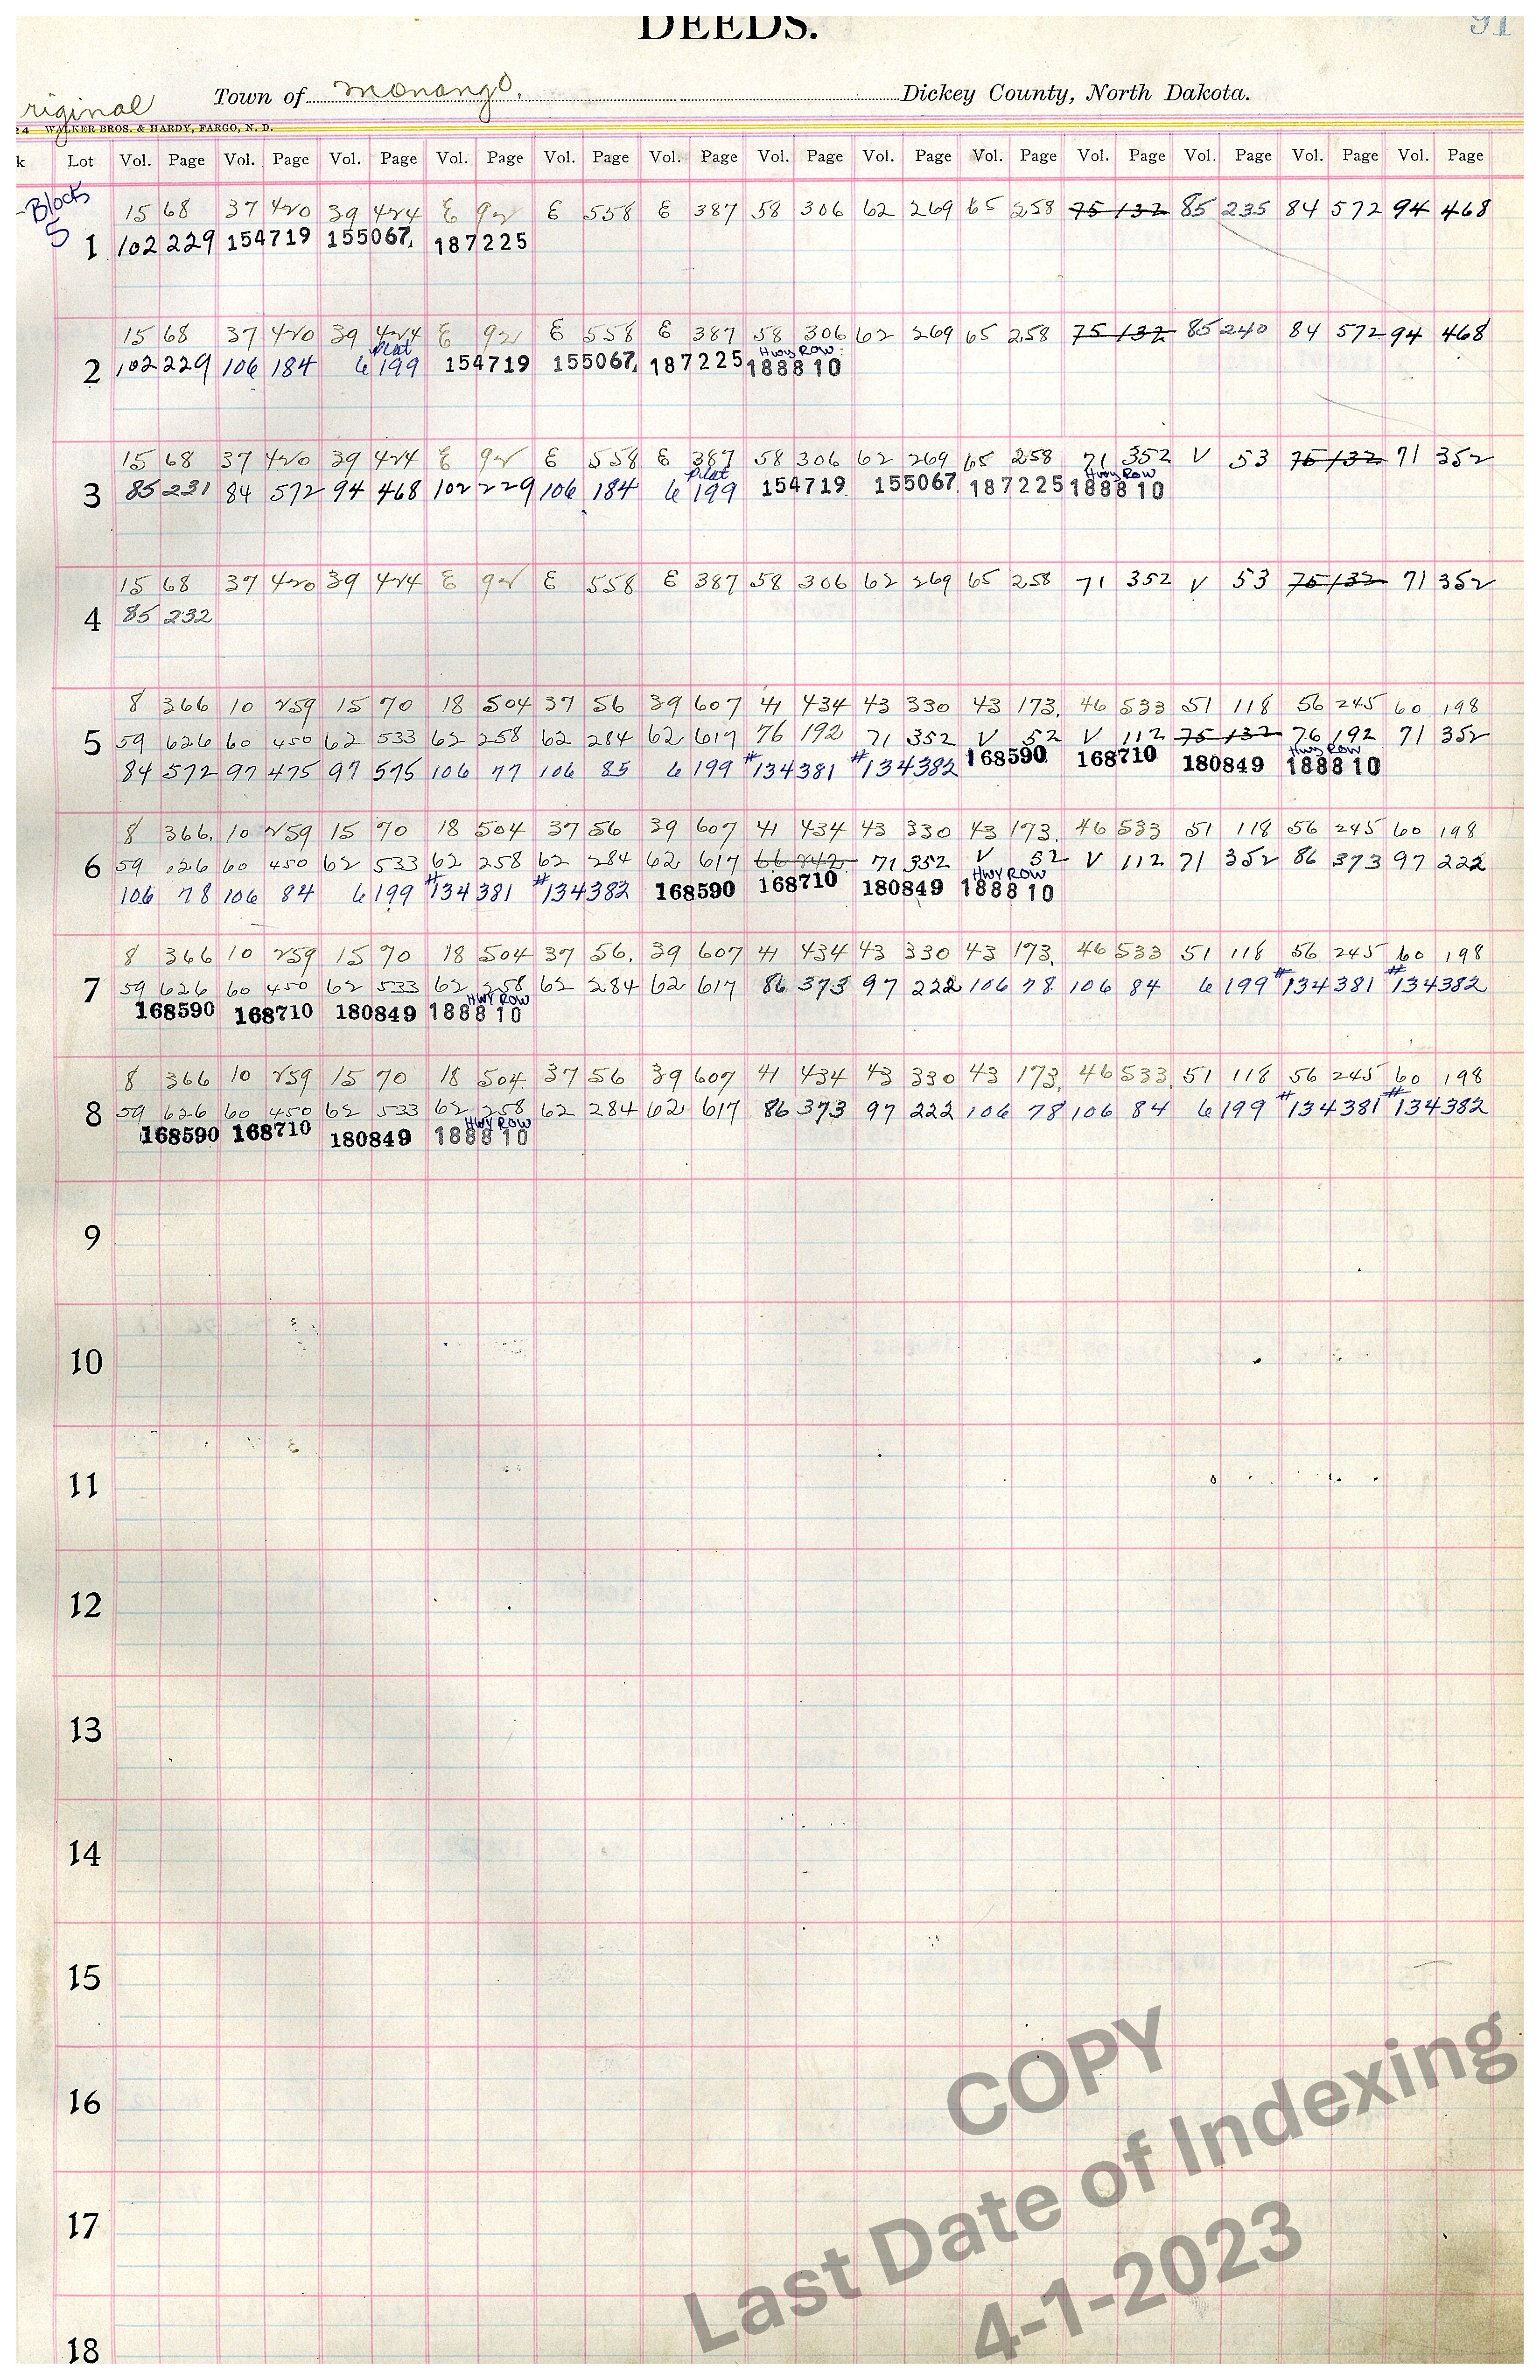 DEEDS.
91
riginal
Town of Monango, Dickey County, North Dakota.
24 WALKER BROS. & HARDY, FARGO, N. D.
k Lot Vol. Page Vol. Page Vol. Page Vol. Page Vol. Page Vol. Page Vol. Page Vol. Page Vol. Page Vol. Page Vol. Page Vol. Page Vol. Page
Block
5
15 68 37 420 39 424 E 92 E 558 E 387 58 306 62 269 65 258 75 132 85 235 84 572 94 468
1 102 229 154719 155067 187225
15 68 37 420 39 424 E 92 E 558 E 387 58 306 62 269 65 258 75 132 85 240 84 572 94 468
Plat Hwy Row
2 102 229 106 184 6 199 154719 155067 187225 188810
15 68 37 420 39 424 E 92 E 558 E 387 58 306 62 269 65 258 71 352 V 53 75 132 71 352
Plat Hwy Row
3 85 231 84 572 94 468 102 229 106 184 6 199 154719 155067 187225 188810
15 68 37 420 39 424 E 92 E 558 E 387 58 306 62 269 65 258 71 352 V 53 75 132 71 352
4 85 232
8 366 10 259 15 70 18 504 37 56 39 607 41 434 43 330 43 173 46 533 51 118 56 245 60 198
5 59 626 60 450 62 533 62 258 62 284 62 617 76 192 71 352 V 52 V 112 75 132 76 192 71 352
Hwy Row
84 572 97 475 97 575 106 77 106 85 6 199 #134381 #134382 168590 168710 180849 188810
8 366 10 259 15 70 18 504 37 56 39 607 41 434 43 330 43 173 46 533 51 118 56 245 60 198
6 59 626 60 450 62 533 62 258 62 284 62 617 66 242 71 352 V 52 V 112 71 352 86 373 97 222
HWY ROW
106 78 106 84 6 199 #134381 #134382 168590 168710 180849 188810
8 366 10 259 15 70 18 504 37 56 39 607 41 434 43 330 43 173 46 533 51 118 56 245 60 198
7 59 626 60 450 62 533 62 258 62 284 62 617 86 373 97 222 106 78 106 84 6 199 #134381 #134382
HWY ROW
168590 168710 180849 188810
8 366 10 259 15 70 18 504 37 56 39 607 41 434 43 330 43 173 46 533 51 118 56 245 60 198
8 59 626 60 450 62 533 62 258 62 284 62 617 86 373 97 222 106 78 106 84 6 199 #134381 #134382
HWY ROW
168590 168710 180849 188810
9
10
11
12
13
14
15
16
17
18
COPY
Last Date of Indexing
4-1-2023